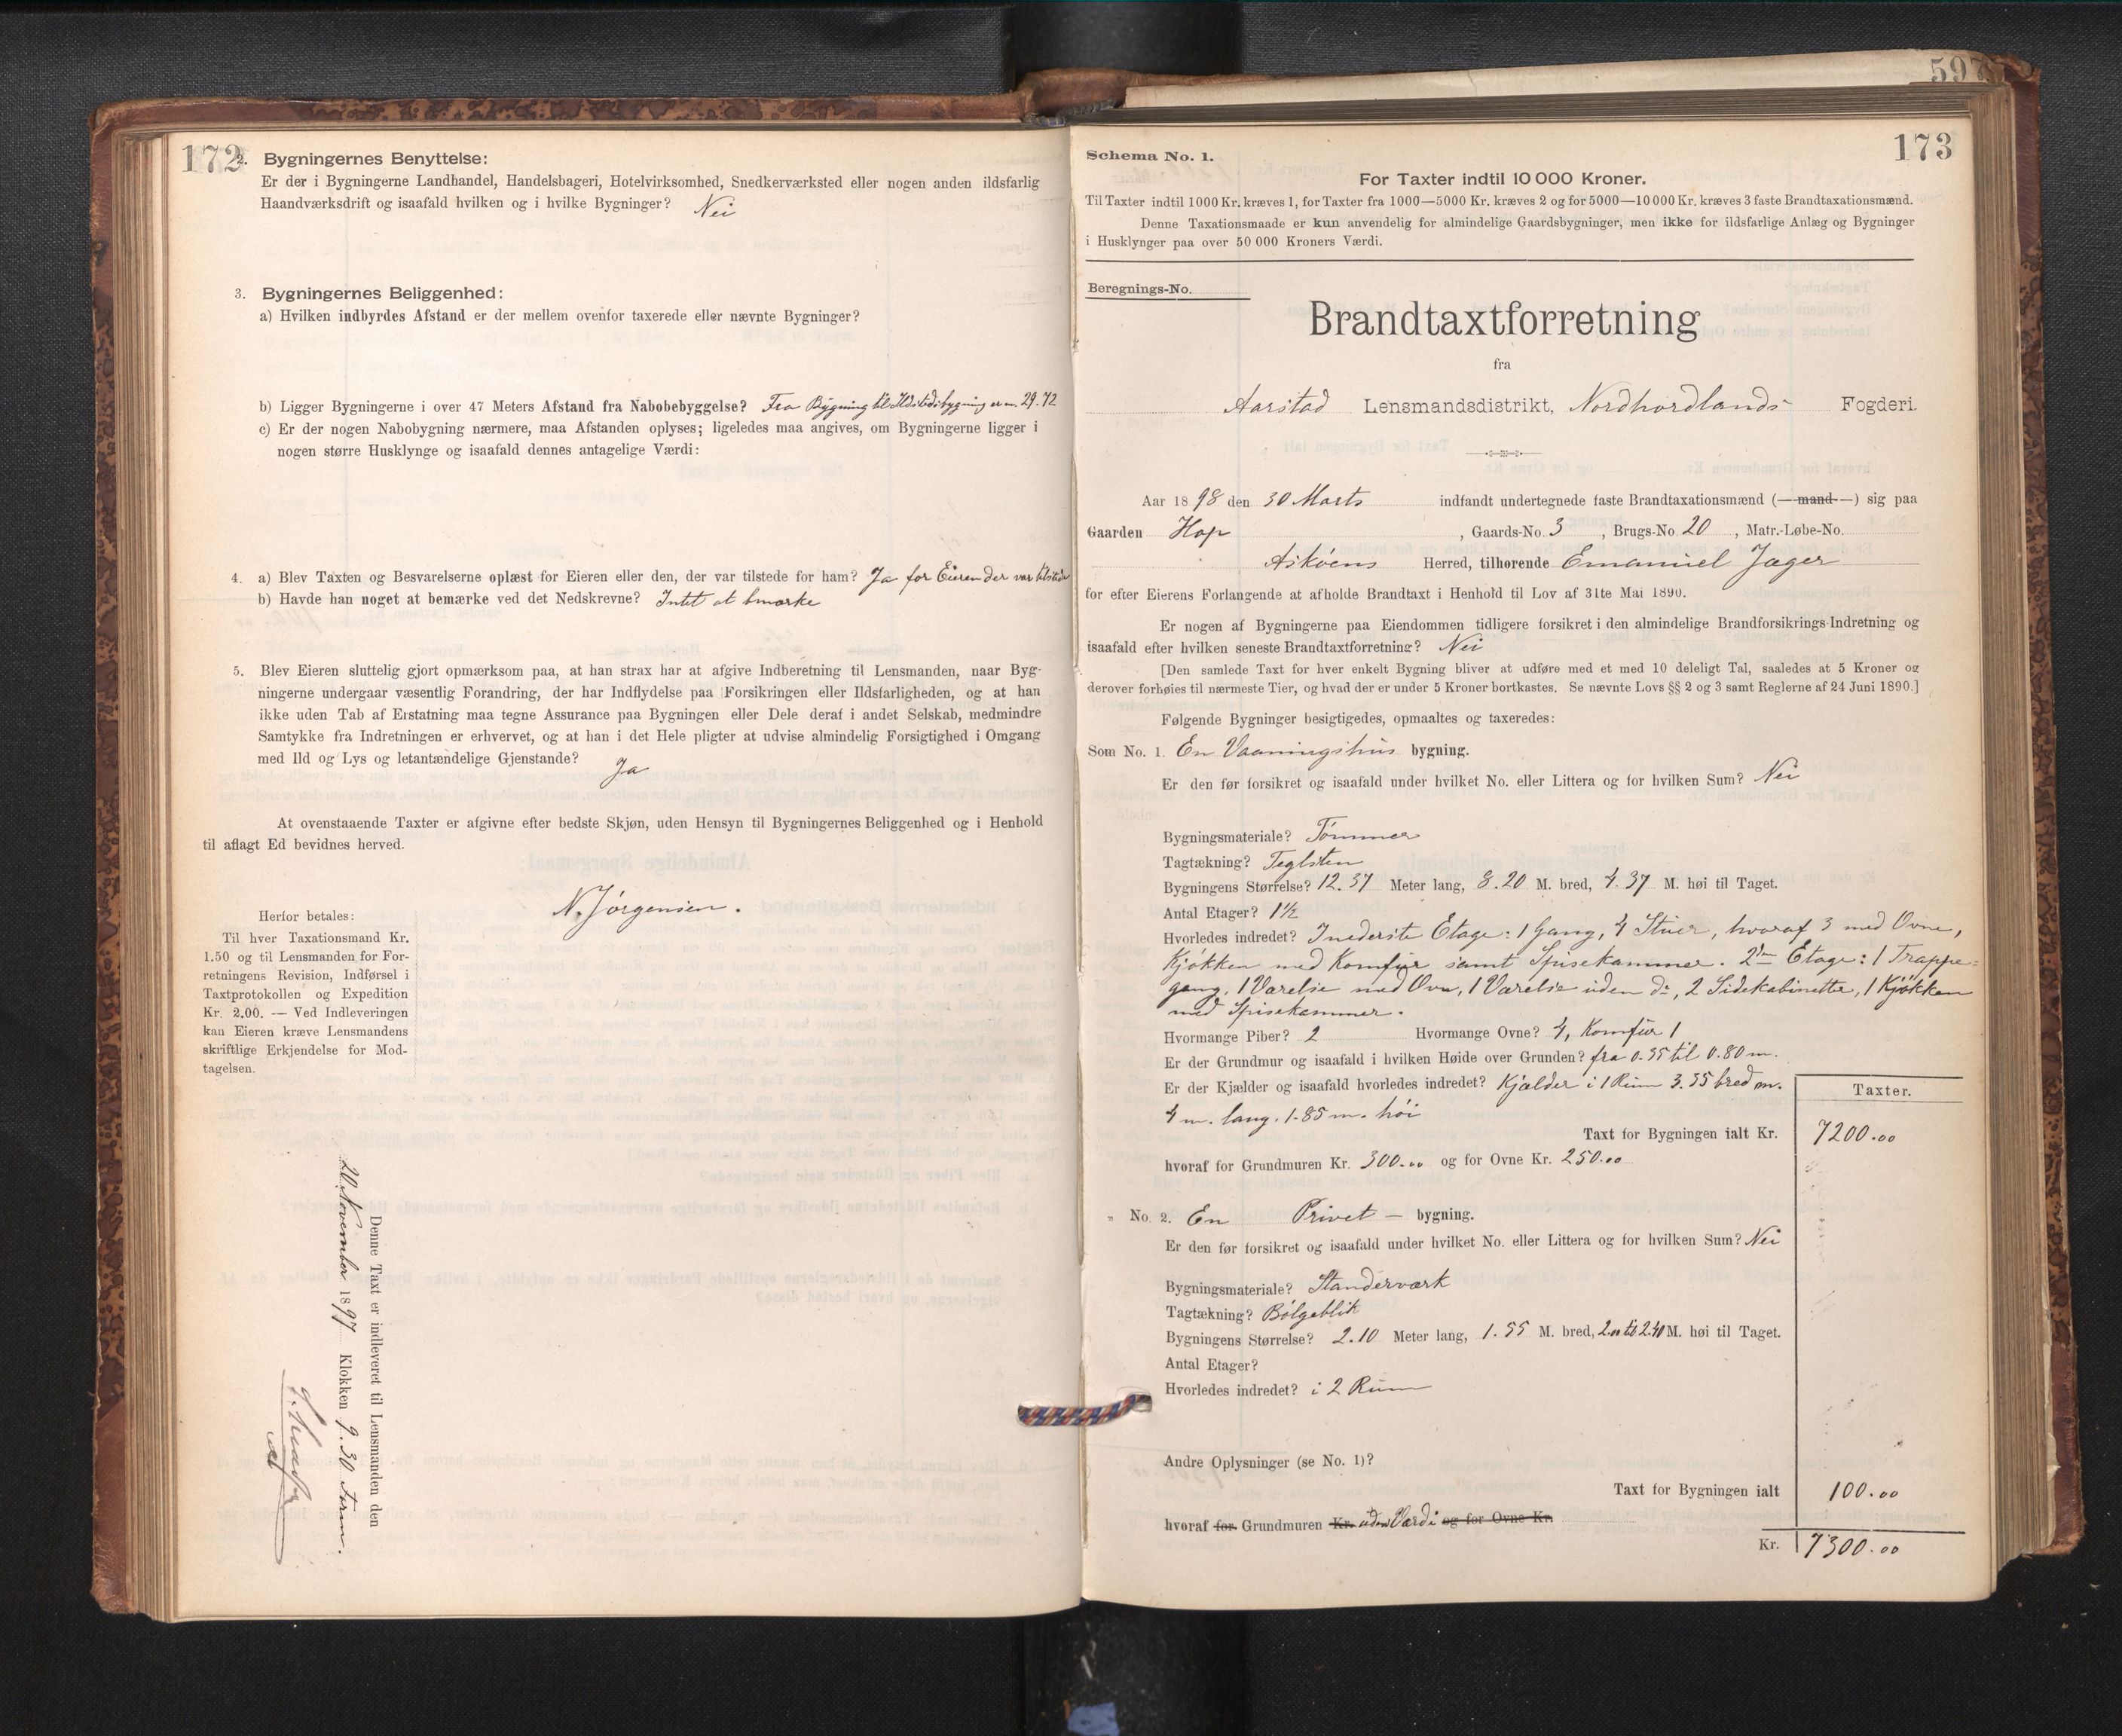 172
2. Bygningernes Benyttelse:
Er der i Bygningerne Landhandel, Handelsbageri, Hotelvirksomhed, Snedkerværksted eller nogen anden ildsfarlig
Haandværksdrift og isaafald hvilken og i hvilke Bygninger? Nei
3. Bygningernes Beliggenhed:
a) Hvilken indbyrdes Afstand er der mellem ovenfor taxerede eller nævnte Bygninger?
b) Ligger Bygningerne i over 47 Meters Afstand fra Nabobebyggelse? Fra Bygning til Ildstedsbygning er m. 29.72
c) Er der nogen Nabobygning nærmere, maa Afstanden oplyses; ligeledes maa angives, om Bygningerne ligger i
nogen større Husklynge og isaafald dennes antagelige Værdi:
4. a) Blev Taxten og Besvarelserne oplæst for Eieren eller den, der var tilstede for ham? Ja for Eieren der var tilstede
b) Havde han noget at bemærke ved det Nedskrevne? Intet at bmærke
5. Blev Eieren sluttelig gjort opmærksom paa, at han strax har at afgive Indberetning til Lensmanden, naar Byg-
ningerne undergaar væsentlig Forandring, der har Indflydelse paa Forsikringen eller Ildsfarligheden, og at han
ikke uden Tab af Erstatning maa tegne Assurance paa Bygningen eller Dele deraf i andet Selskab, medmindre
Samtykke fra Indretningen er erhvervet, og at han i det Hele pligter at udvise almindelig Forsigtighed i Omgang
med Ild og Lys og letantændelige Gjenstande? Ja
At ovenstaaende Taxter er afgivne efter bedste Skjøn, uden Hensyn til Bygningernes Beliggenhed og i Henhold
til aflagt Ed bevidnes herved.
N. Jørgensen.
Herfor betales:
Til hver Taxationsmand Kr.
1.50 og til Lensmanden for For-
retningens Revision, Indførsel i
Taxtprotokollen og Expedition
Kr. 2.00. — Ved Indleveringen
kan Eieren kræve Lensmandens
skriftlige Erkjendelse for Mod-
tagelsen.
Denne Taxt er indleveret til Lensmanden den
20 November 1897 Klokken 9.30 Form.
597
173
Schema No. 1.
For Taxter indtil 10 000 Kroner.
Til Taxter indtil 1000 Kr. kræves 1, for Taxter fra 1000—5000 Kr. kræves 2 og for 5000—10 000 Kr. kræves 3 faste Brandtaxationsmænd.
Denne Taxationsmaade er kun anvendelig for almindelige Gaardsbygninger, men ikke for ildsfarlige Anlæg og Bygninger
i Husklynger paa over 50 000 Kroners Værdi.
Beregnings-No.
Brandtaxtforretning
fra
Aarstad Lensmandsdistrikt, Nordhordlands Fogderi.
Aar 1898 den 30 Marts indfandt undertegnede faste Brandtaxationsmænd (—mand—) sig paa
Gaarden Hop, Gaards-No. 3, Brugs-No. 20, Matr.-Løbe-No.
Askøens Herred, tilhørende Emanuel Jæger
for efter Eierens Forlangende at afholde Brandtaxt i Henhold til Lov af 31te Mai 1890.
Er nogen af Bygningerne paa Eiendommen tidligere forsikret i den almindelige Brandforsikrings-Indretning og
isaafald efter hvilken seneste Brandtaxtforretning? Nei
[Den samlede Taxt for hver enkelt Bygning bliver at udføre med et med 10 deleligt Tal, saaledes at 5 Kroner og
derover forhøies til nærmeste Tier, og hvad der er under 5 Kroner bortkastes. Se nævnte Lovs §§ 2 og 3 samt Reglerne af 24 Juni 1890.]
Følgende Bygninger besigtigedes, opmaaltes og taxeredes:
Som No. 1. En Vaaningshus bygning.
Er den før forsikret og isaafald under hvilket No. eller Littera og for hvilken Sum? Nei
Bygningsmateriale? Tømmer
Tagtækning? Teglsten
Bygningens Størrelse? 12.37 Meter lang, 8.20 M. bred, 4.37 M. høi til Taget.
Antal Etager? 1½
Hvorledes indredet? I nederste Etage: 1 Gang, 4 Stuer, hvoraf 3 med Ovne,
Kjøkken med Komfür samt Spisekammer. 2den Etage: 1 Trappe-
gang, 1 Værelse med Ovn, 1 Værelse uden do, 2 Sidekabinetter, 1 Kjøkken
med Spisekammer.
Hvormange Piber? 2 Hvormange Ovne? 4, Komfür 1
Er der Grundmur og isaafald i hvilken Høide over Grunden? fra 0.35 til 0.80 m.
Er der Kjælder og isaafald hvorledes indredet? Kjælder i 1 Rum 3.35 bred m.
4 m. lang. 1.85 m. høi
Taxter.
Taxt for Bygningen ialt Kr. 7200.00
hvoraf for Grundmuren Kr. 300.00 og for Ovne Kr. 250.00
„ No. 2. En Privet — bygning.
Er den før forsikret og isaafald under hvilket No. eller Littera og for hvilken Sum? Nei
Bygningsmateriale? Standerværk
Tagtækning? Bølgeblik
Bygningens Størrelse? 2.10 Meter lang, 1.55 M. bred, 2.00 til 2.40 M. høi til Taget.
Antal Etager?
Hvorledes indredet? i 2 Rum
Andre Oplysninger (se No. 1)?
Taxt for Bygningen ialt 100.00
hvoraf for Grundmuren Kr. uden Værdi og for Ovne Kr.
Kr. 7300.00